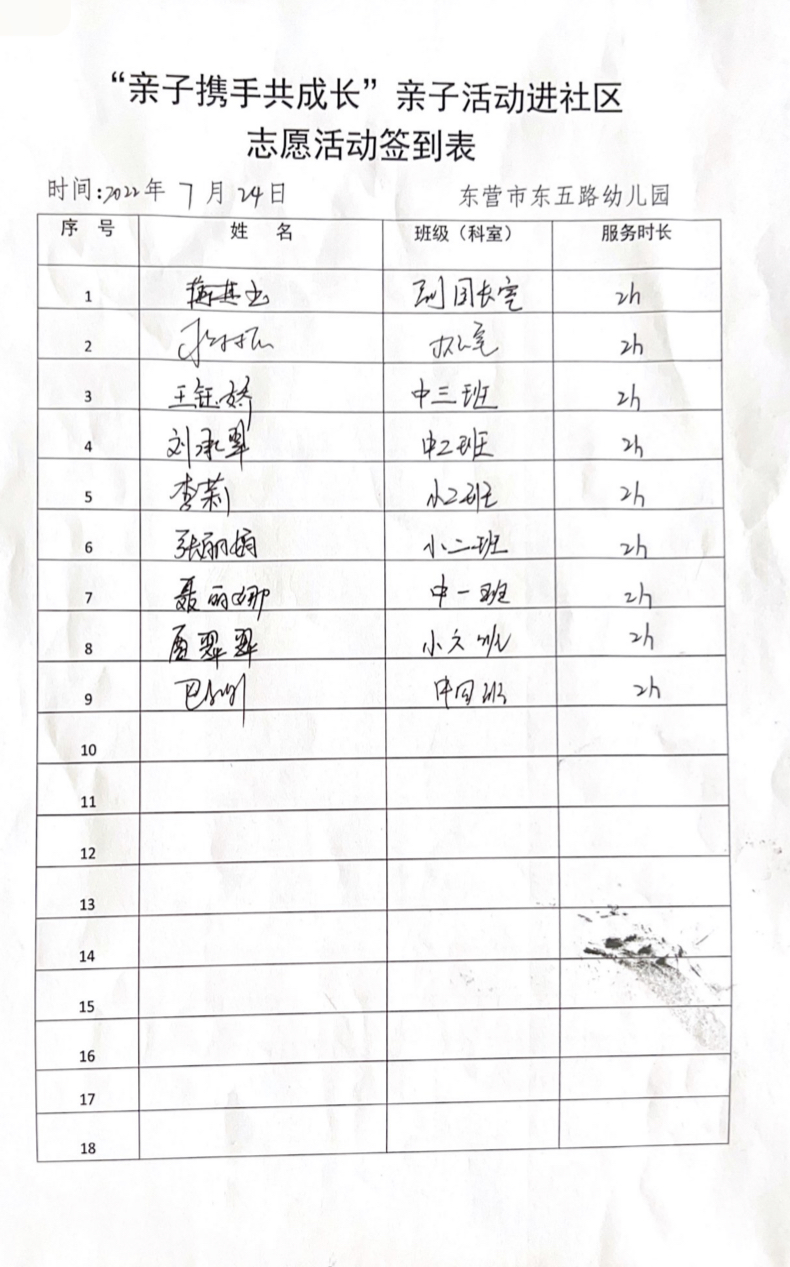 “亲子携手共成长”亲子活动进社区
志愿活动签到表
时间:2022年 7月24日 东营市东五路幼儿园
序 号 姓 名 班级（科室） 服务时长
1 副园长室 2h
2 2h
3 王钰娇 中三班 2h
4 刘承翠 中二班 2h
5 李莉 小二班 2h
6 张丽娟 小二班 2h
7 聂丽娜 中一班 2h
8 夏翠翠 小六班 2h
9 中四班 2h
10
11
12
13
14
15
16
17
18